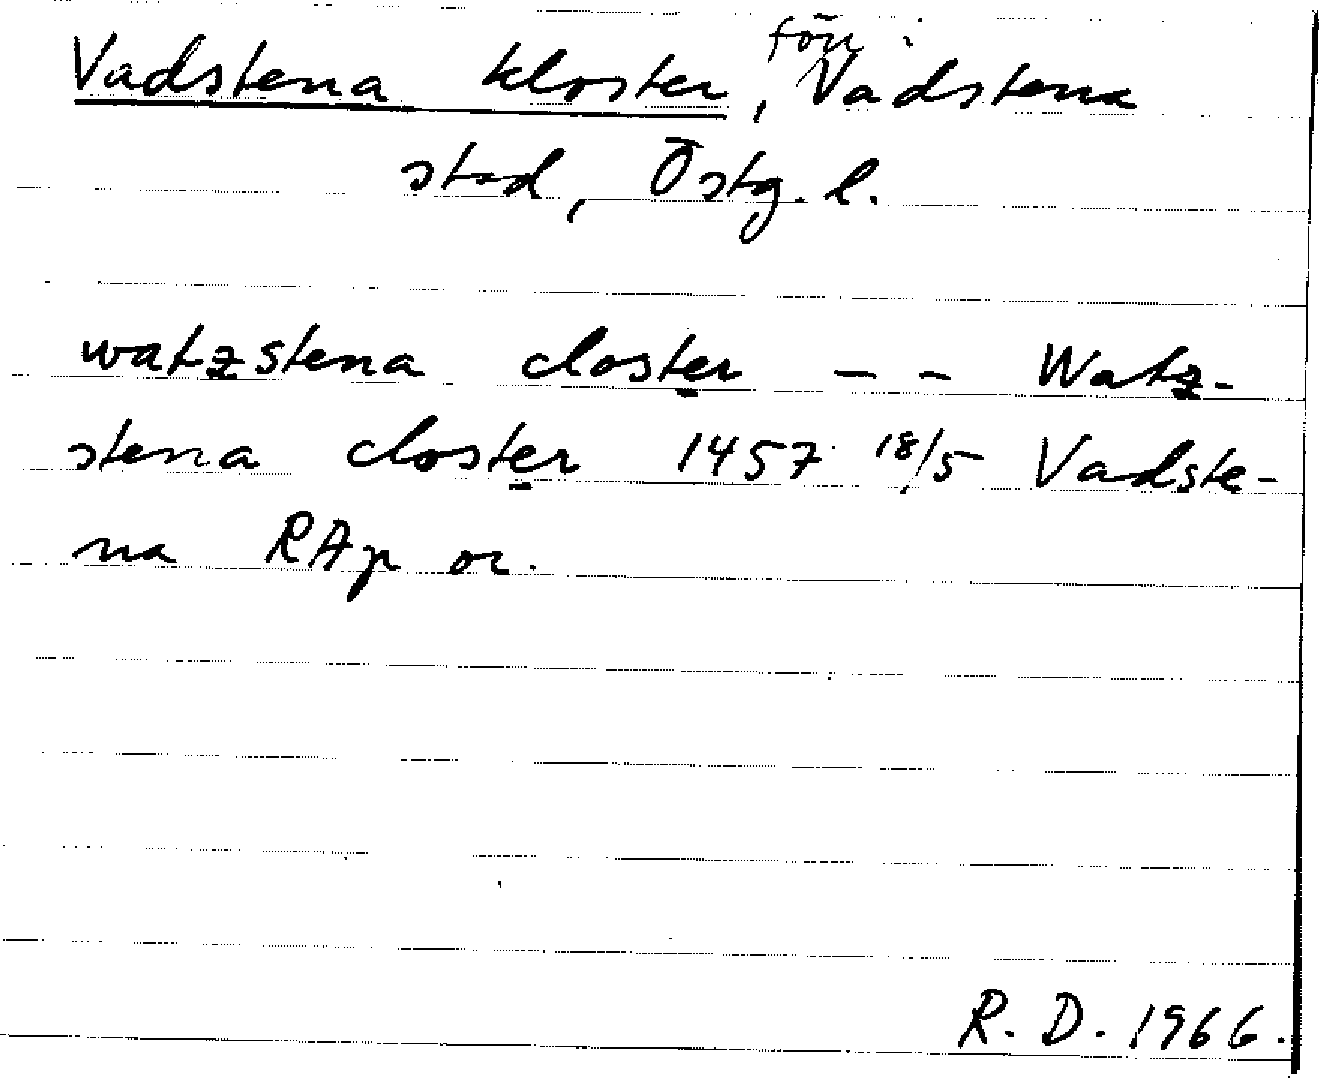 Vadstena kloster, förr: Vadstena
stad, Östg. l.
watzstena closter – – Watz-
stena closter 1457 18/5 Vadste-
na RAp or.
R. D. 1966.